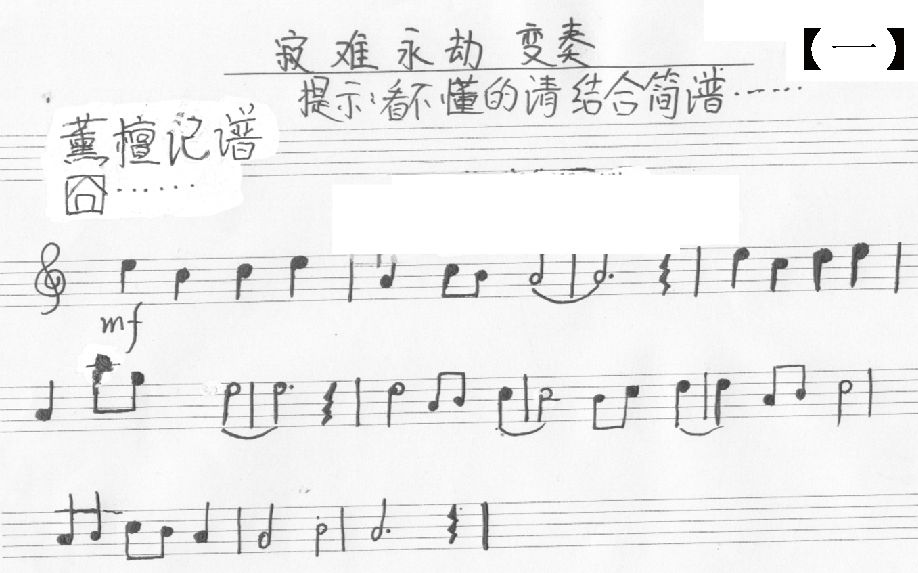 【(一)】
寂难永劫 变奏
提示:看不懂的请结合简谱……
薰檀记谱
囧……
mf